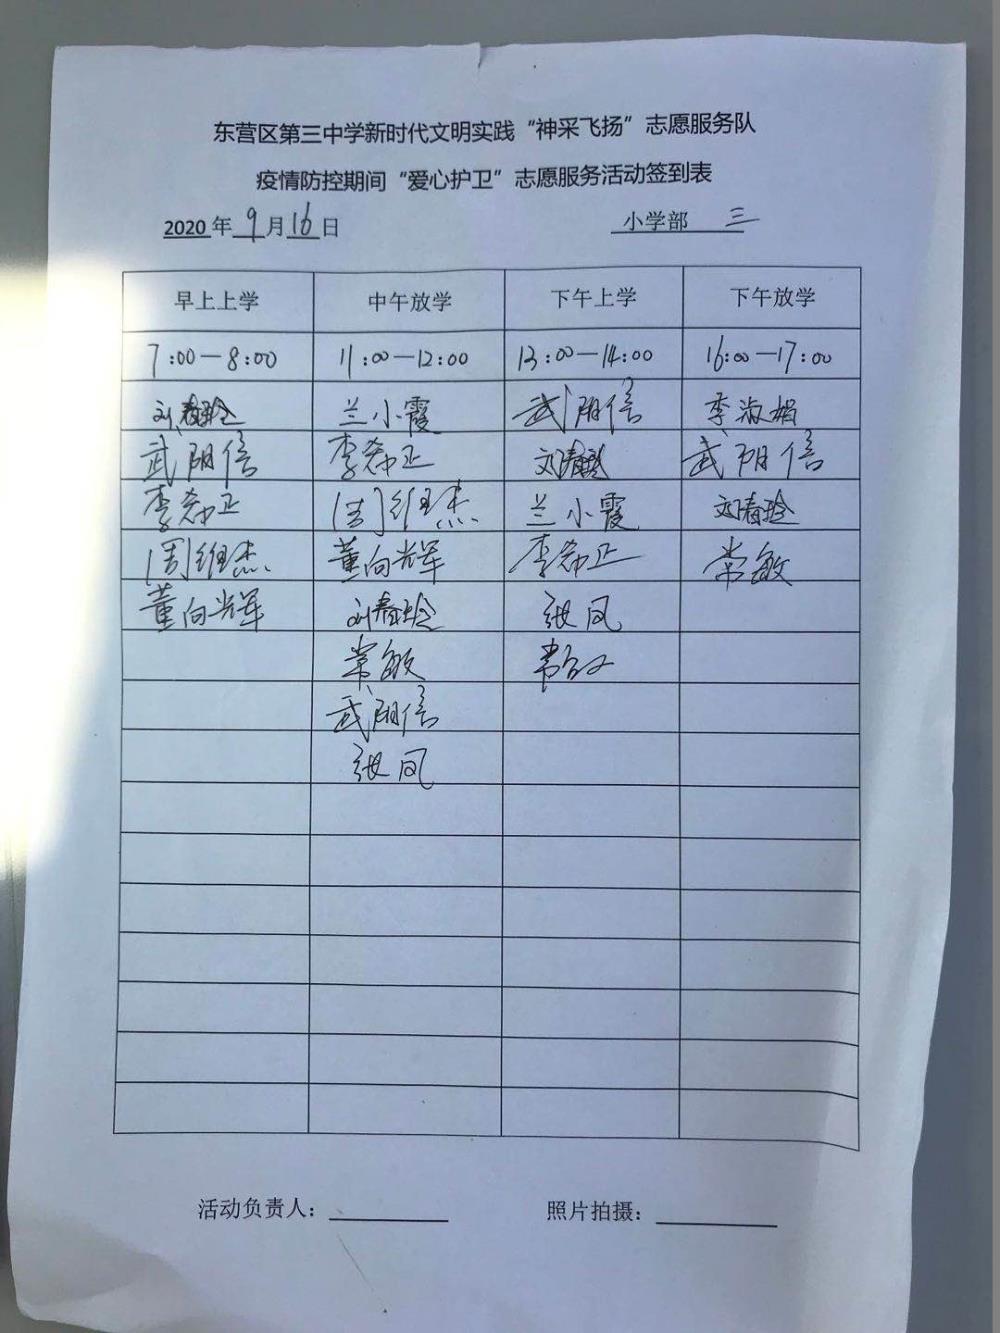 东营区第三中学新时代文明实践“神采飞扬”志愿服务队
疫情防控期间“爱心护卫”志愿服务活动签到表
2020年9月16日 小学部 三
早上上学 中午放学 下午上学 下午放学
7:00—8:00 11:00—12:00 13:00—14:00 16:00—17:00
刘春玲 兰小霞 武阴信 李淑娟
武阴信 李希正 刘春玲 武阴信
李希正 周维杰 兰小霞 刘春玲
周维杰 董向辉 李希正 常敏
董向辉 刘春玲 张凤
常敏 常敏
武阴信
张凤
活动负责人： 照片拍摄：